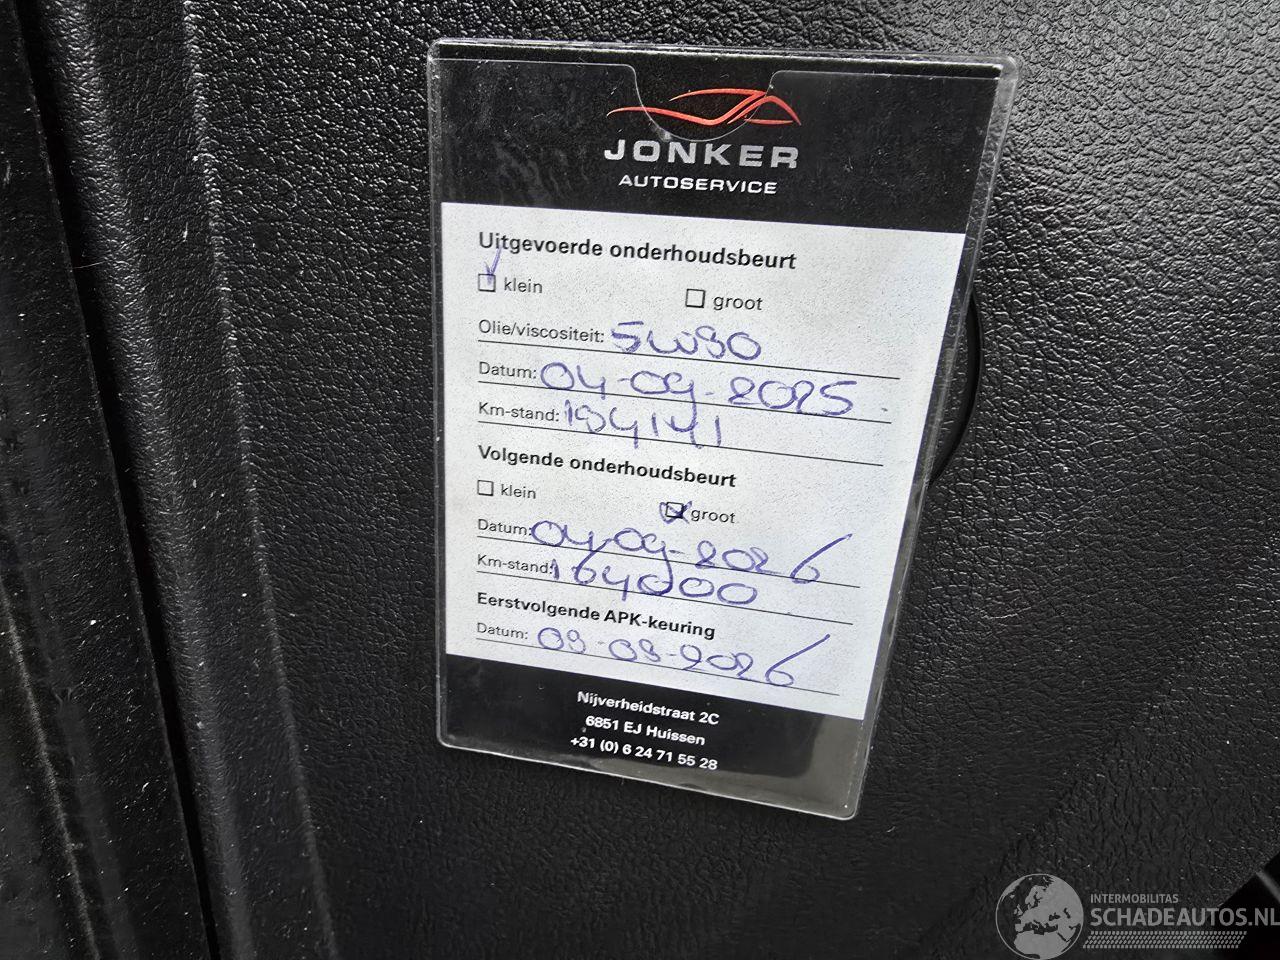 JONKER
AUTOSERVICE
Uitgevoerde onderhoudsbeurt
klein groot
Olie/viscositeit: 5w30
Datum: 04-09-2025
Km-stand:
Volgende onderhoudsbeurt
klein groot
Datum: 04-09-2026
Km-stand: 164000
Eerstvolgende APK-keuring
Datum:
Nijverheidstraat 2C
6851 EJ Huissen
+31 (0) 6 24 71 55 28
INTERMOBILITAS
SCHADEAUTOS.NL